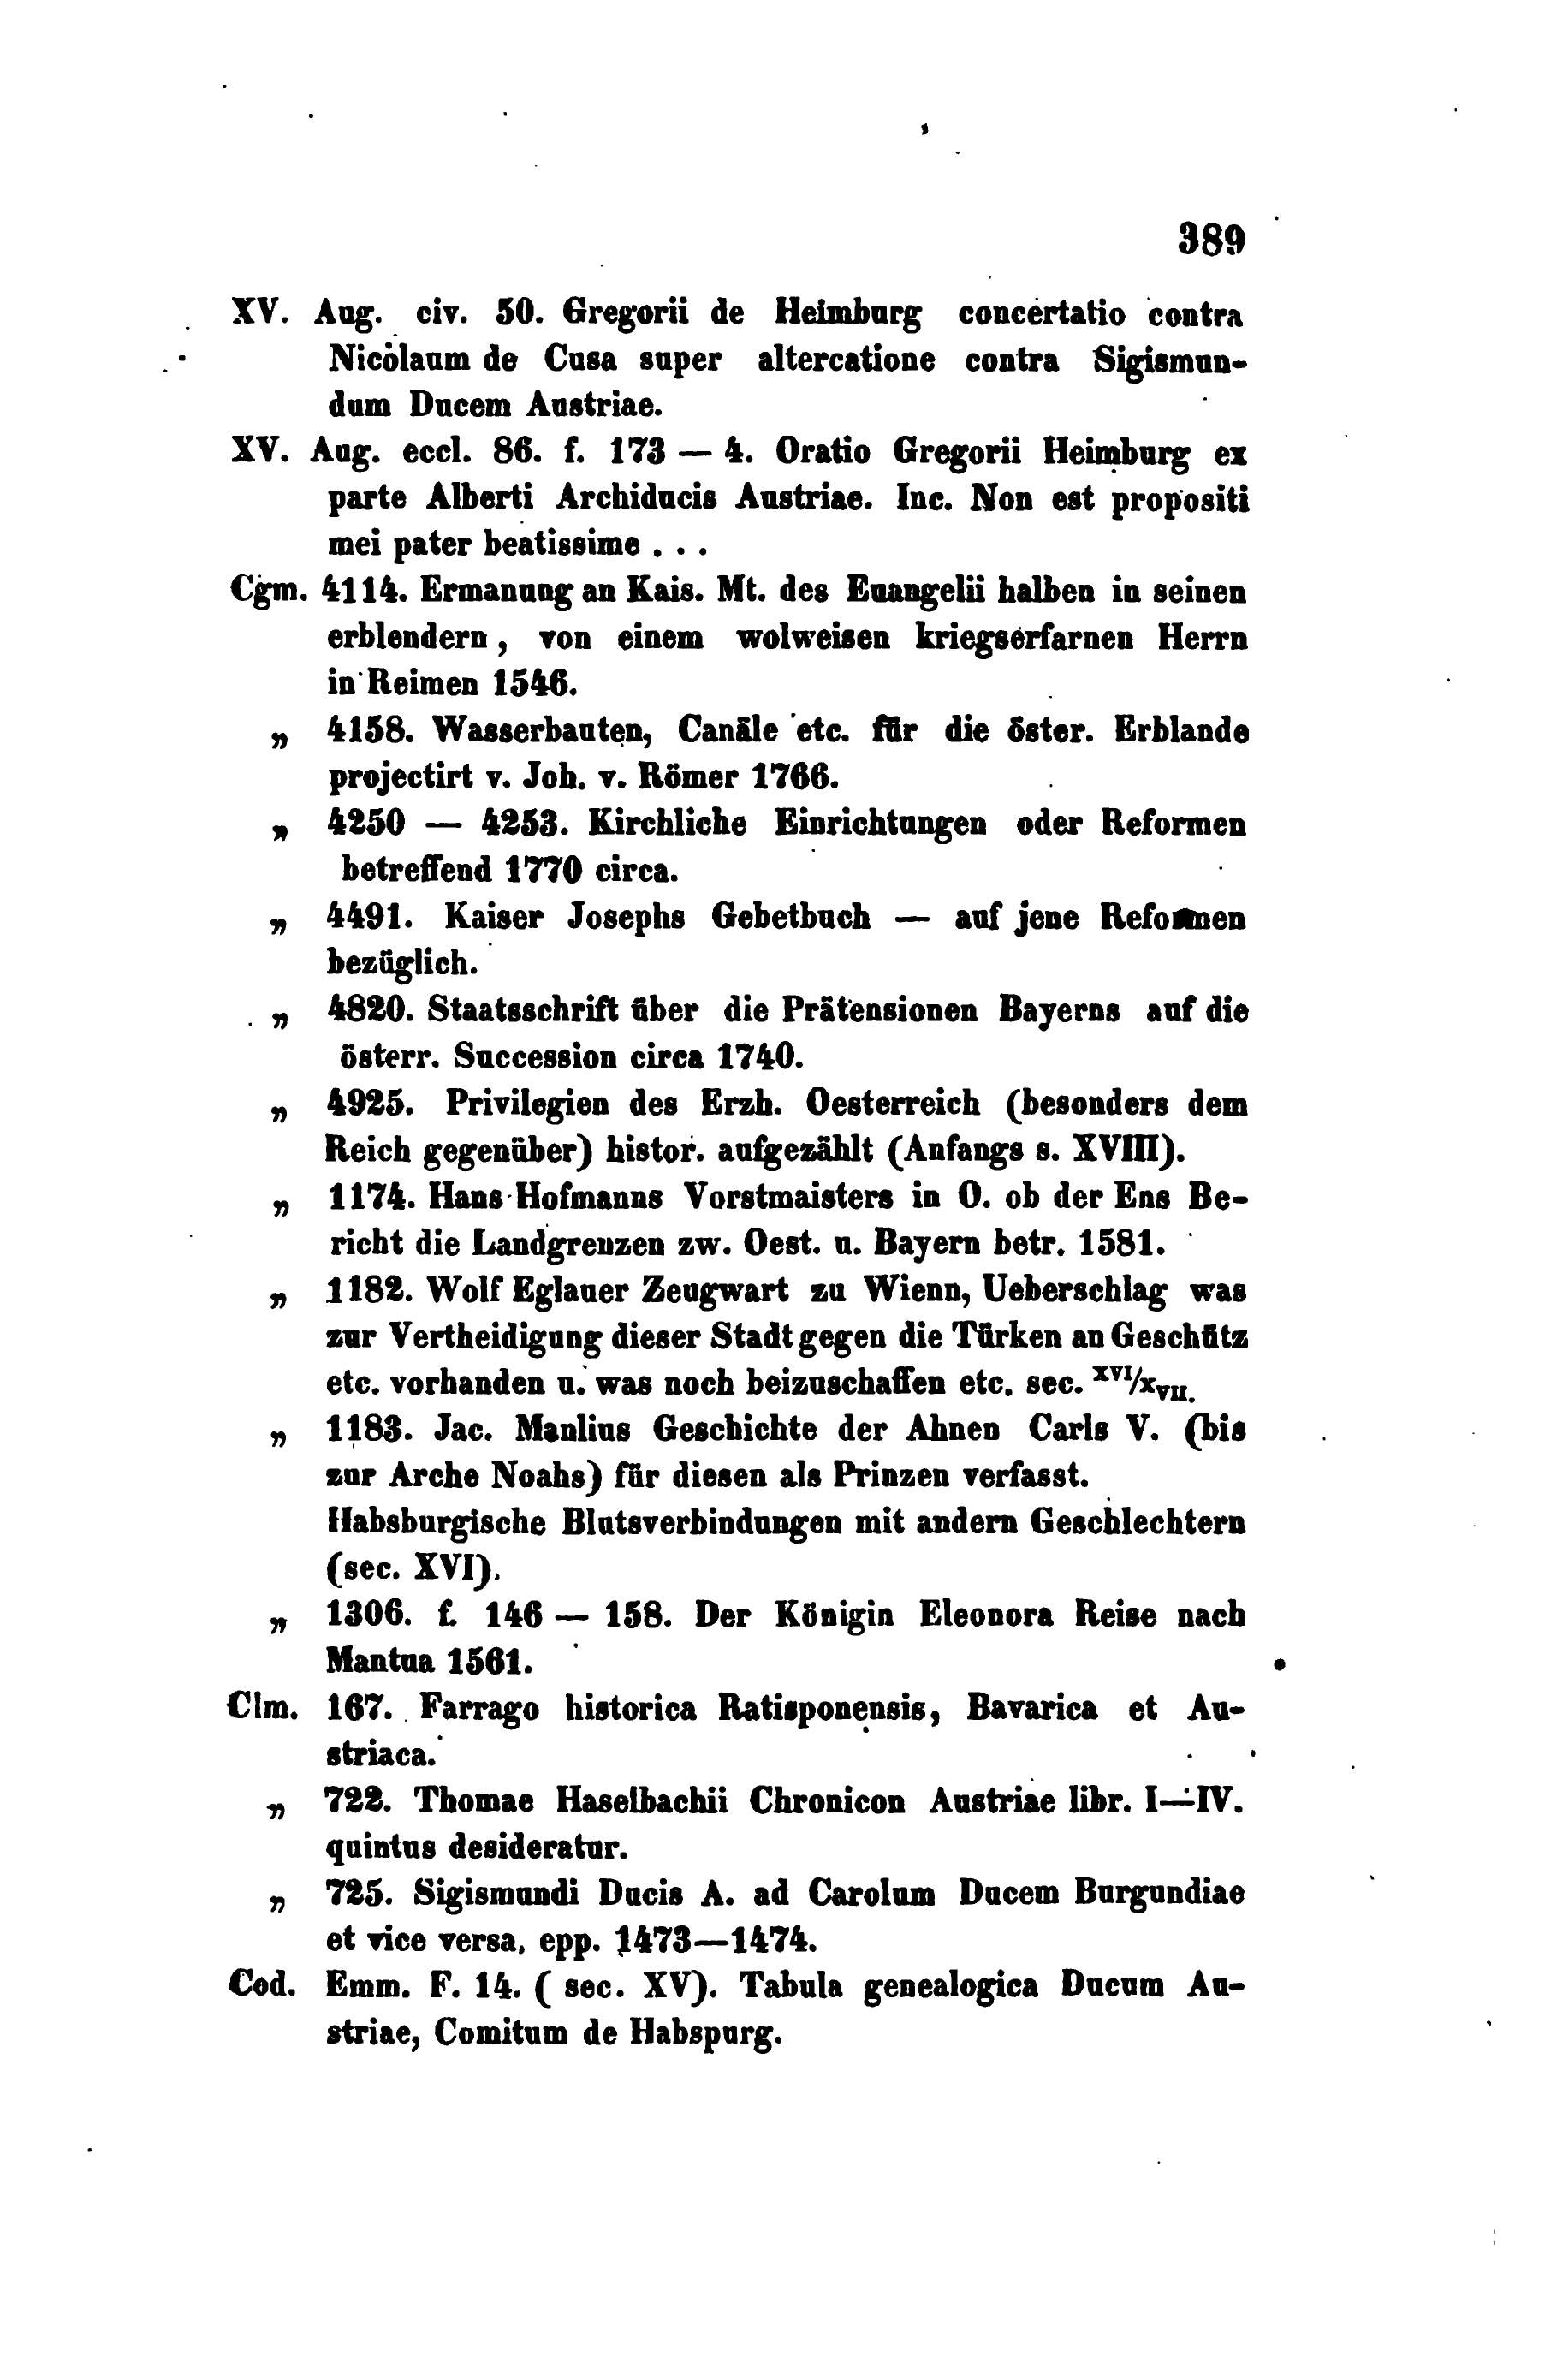 389
XV. Aug. civ. 50. Gregorii de Heimburg concertatio contra
Nicolaum de Cusa super altercatione contra Sigismun-
dum Ducem Austriae.
XV. Aug. eccl. 86. f. 173 — 4. Oratio Gregorii Heimburg ex
parte Alberti Archiducis Austriae. Inc. Non est propositi
mei pater beatissime . . .
Cgm. 4114. Ermanung an Kais. Mt. des Euangelii halben in seinen
erblendern, von einem wolweisen kriegserfarnen Herrn
in Reimen 1546.
„ 4158. Wasserbauten, Canäle etc. für die öster. Erblande
projectirt v. Joh. v. Römer 1766.
„ 4250 — 4253. Kirchliche Einrichtungen oder Reformen
betreffend 1770 circa.
„ 4491. Kaiser Josephs Gebetbuch — auf jene Reformen
bezüglich.
„ 4820. Staatsschrift über die Prätensionen Bayerns auf die
österr. Succession circa 1740.
„ 4925. Privilegien des Erzh. Oesterreich (besonders dem
Reich gegenüber) histor. aufgezählt (Anfangs s. XVIII).
„ 1174. Hans Hofmanns Vorstmaisters in O. ob der Ens Be-
richt die Landgrenzen zw. Oest. u. Bayern betr. 1581.
„ 1182. Wolf Eglauer Zeugwart zu Wienn, Ueberschlag was
zur Vertheidigung dieser Stadt gegen die Türken an Geschütz
etc. vorhanden u. was noch beizuschaffen etc. sec. XVI/XVII.
„ 1183. Jac. Manlius Geschichte der Ahnen Carls V. (bis
zur Arche Noahs) für diesen als Prinzen verfasst.
Habsburgische Blutsverbindungen mit andern Geschlechtern
(sec. XVI).
„ 1306. f. 146 — 158. Der Königin Eleonora Reise nach
Mantua 1561.
Clm. 167. Farrago historica Ratisponensis, Bavarica et Au-
striaca.
„ 722. Thomae Haselbachii Chronicon Austriae libr. I—IV.
quintus desideratur.
„ 725. Sigismundi Ducis A. ad Carolum Ducem Burgundiae
et vice versa, epp. 1473—1474.
Cod. Emm. F. 14. ( sec. XV). Tabula genealogica Ducum Au-
striae, Comitum de Habspurg.